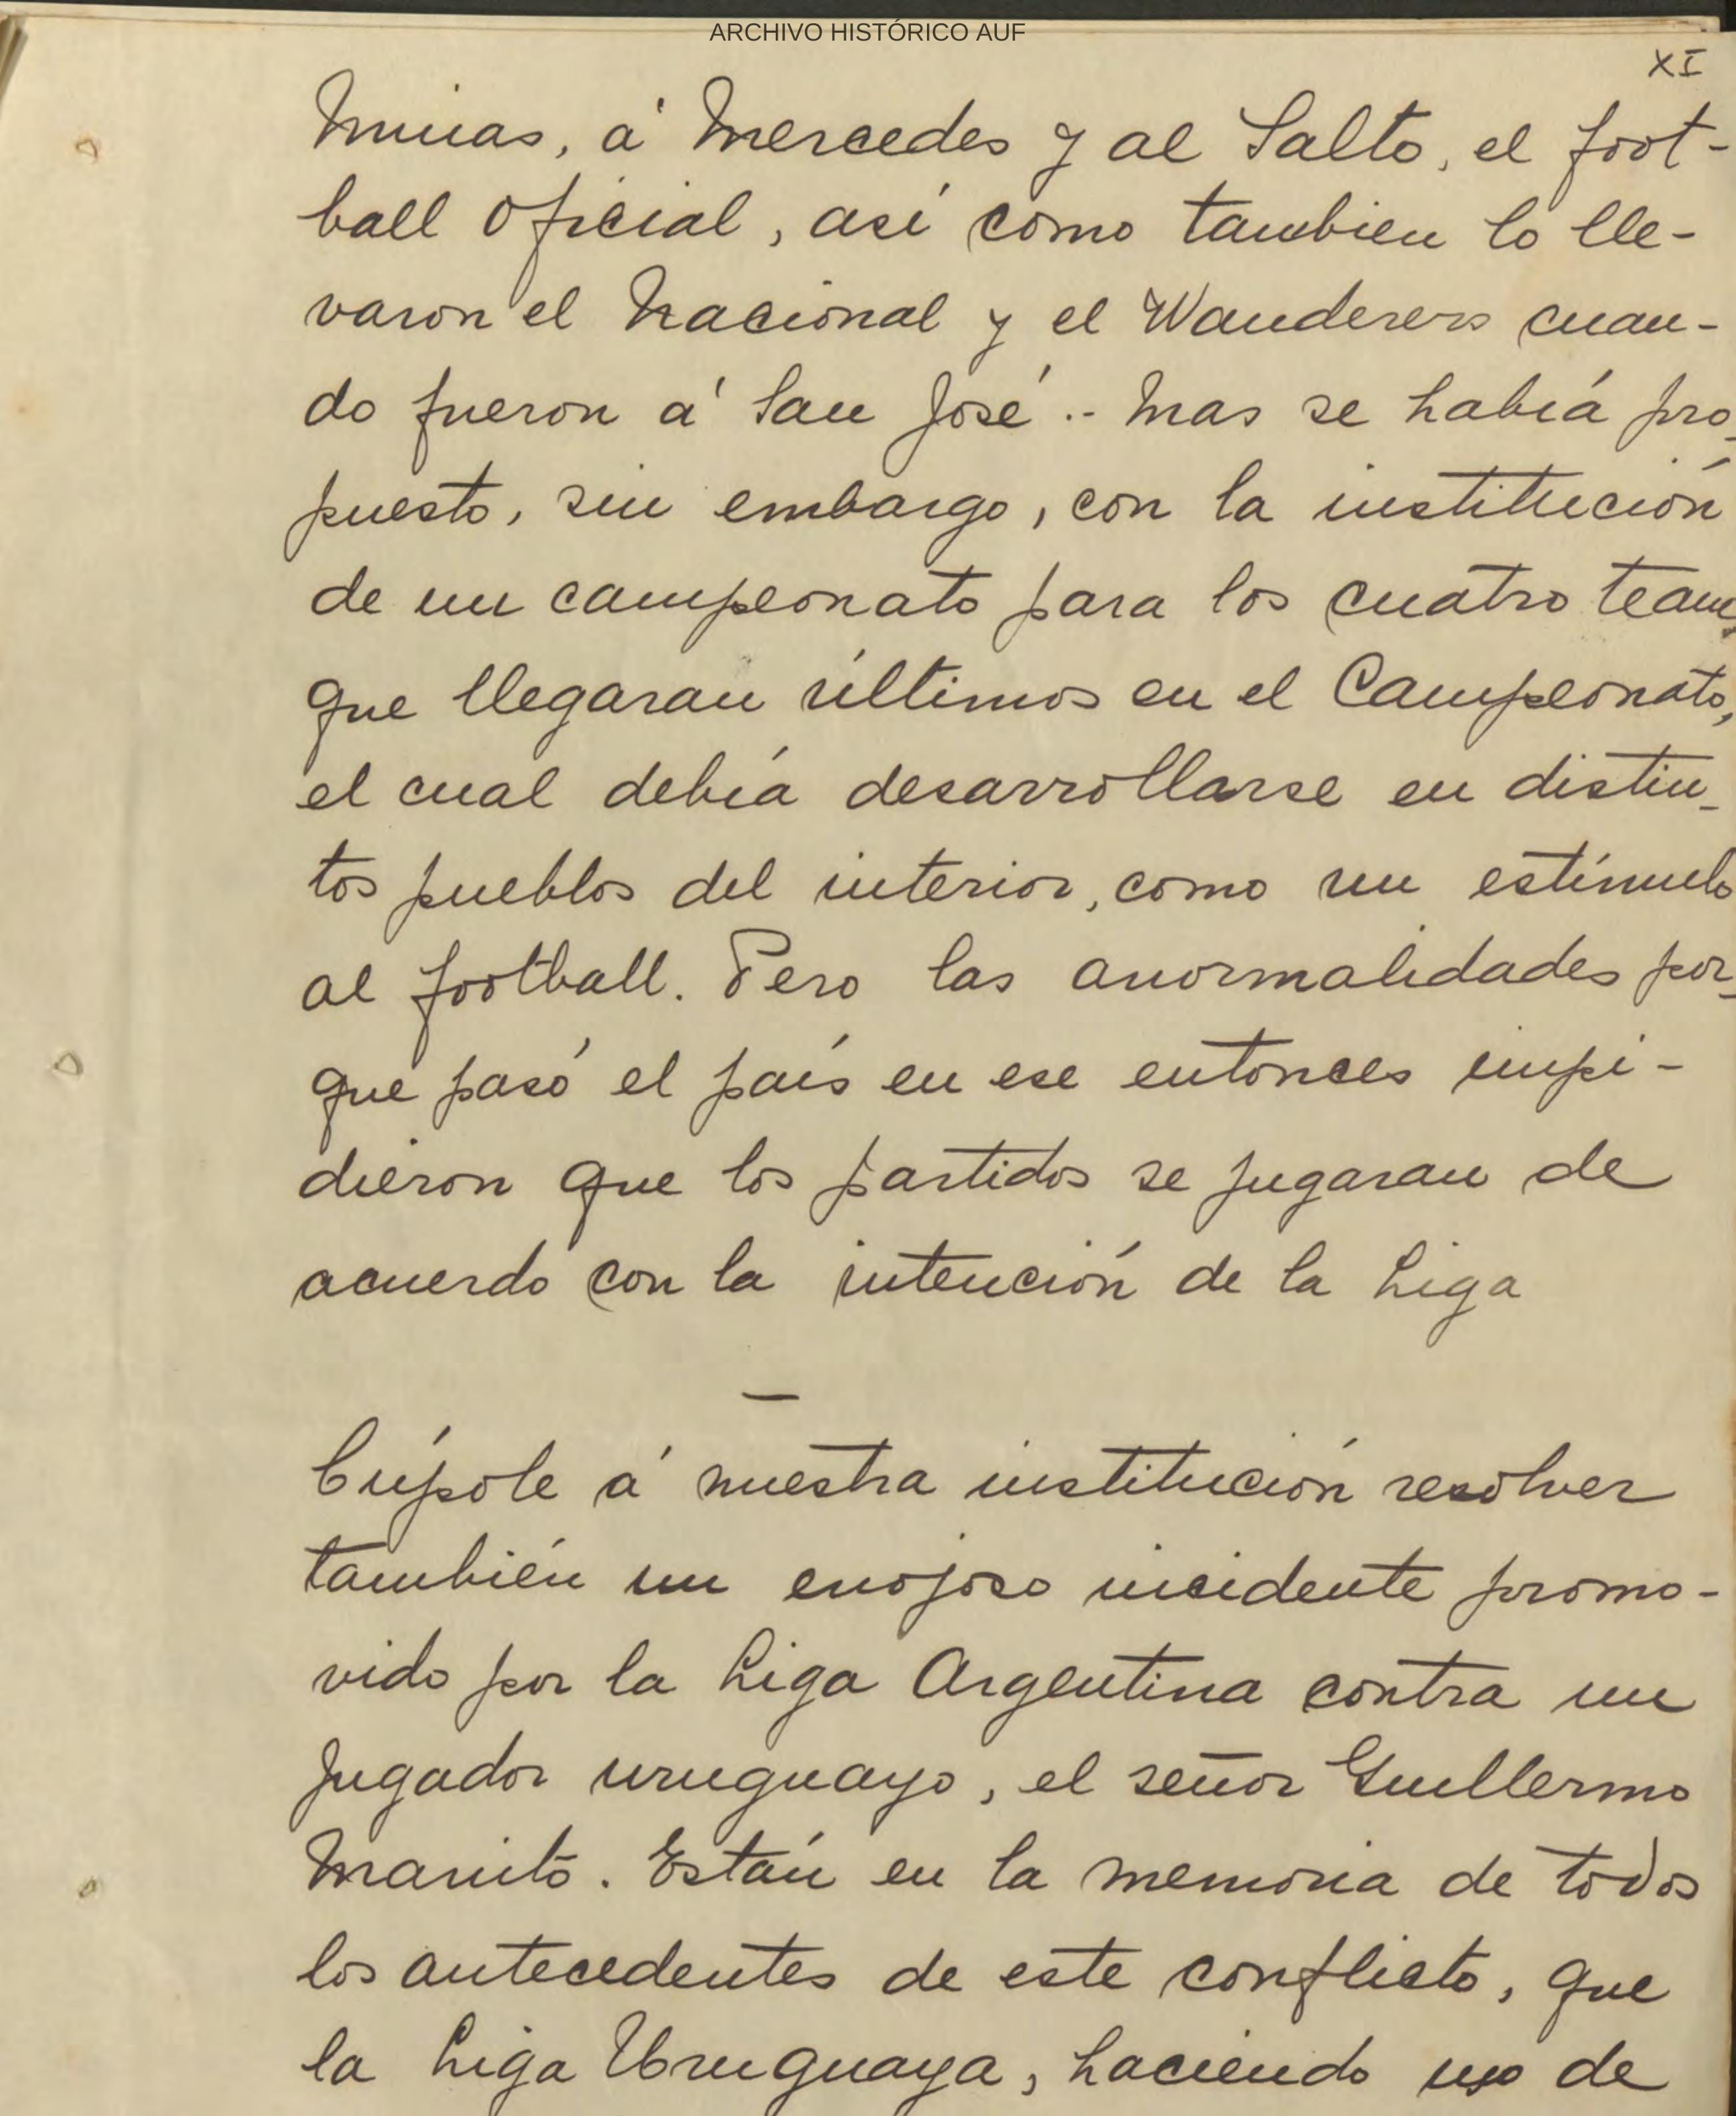 ARCHIVO HISTÓRICO AUF
XI
Minas, á Mercedes y al Salto, el foot-
ball oficial, así como tambien lo lle-
varon el Nacional y el Wanderers cuan-
do fueron á San José.- Mas se había pro-
puesto, sin embargo, con la institución
de un campeonato para los cuatro team
que llegaran últimos en el Campeonato,
el cual debía desarrollarse en distin-
tos pueblos del interior, como un estímulo
al football. Pero las anormalidades por-
que pasó el país en ese entonces impi-
dieron que los partidos se jugaran de
acuerdo con la intención de la Liga
—
Cúpole á nuestra institución resolver
también un enojoso incidente promo-
vido por la Liga Argentina contra un
jugador uruguayo, el señor Guillermo
Manitó. Están en la memoria de todos
los antecedentes de este conflicto, que
la Liga Uruguaya, haciendo uso de